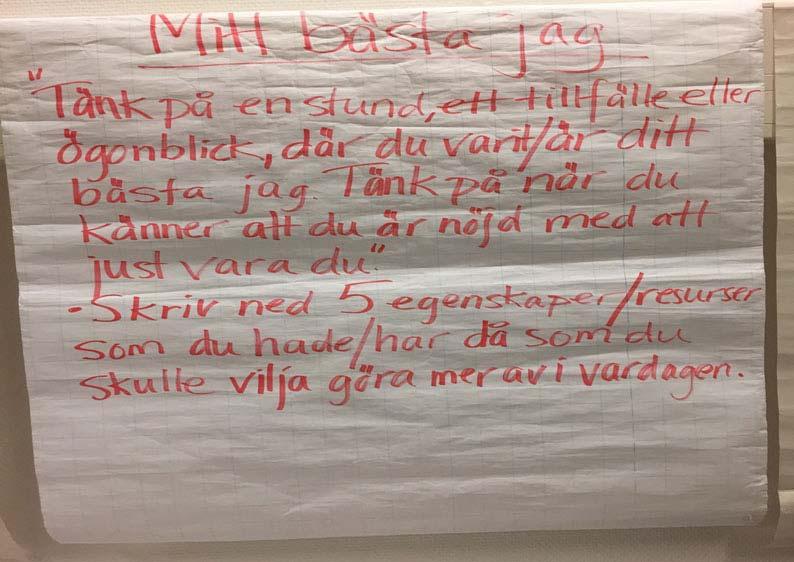 Mitt bästa jag
"Tänk på en stund, ett tillfälle eller
ögonblick, där du varit/är ditt
bästa jag. Tänk på när du
känner att du är nöjd med att
just vara du."
- Skriv ned 5 egenskaper/resurser
som du hade/har då som du
skulle vilja göra mer av i vardagen.